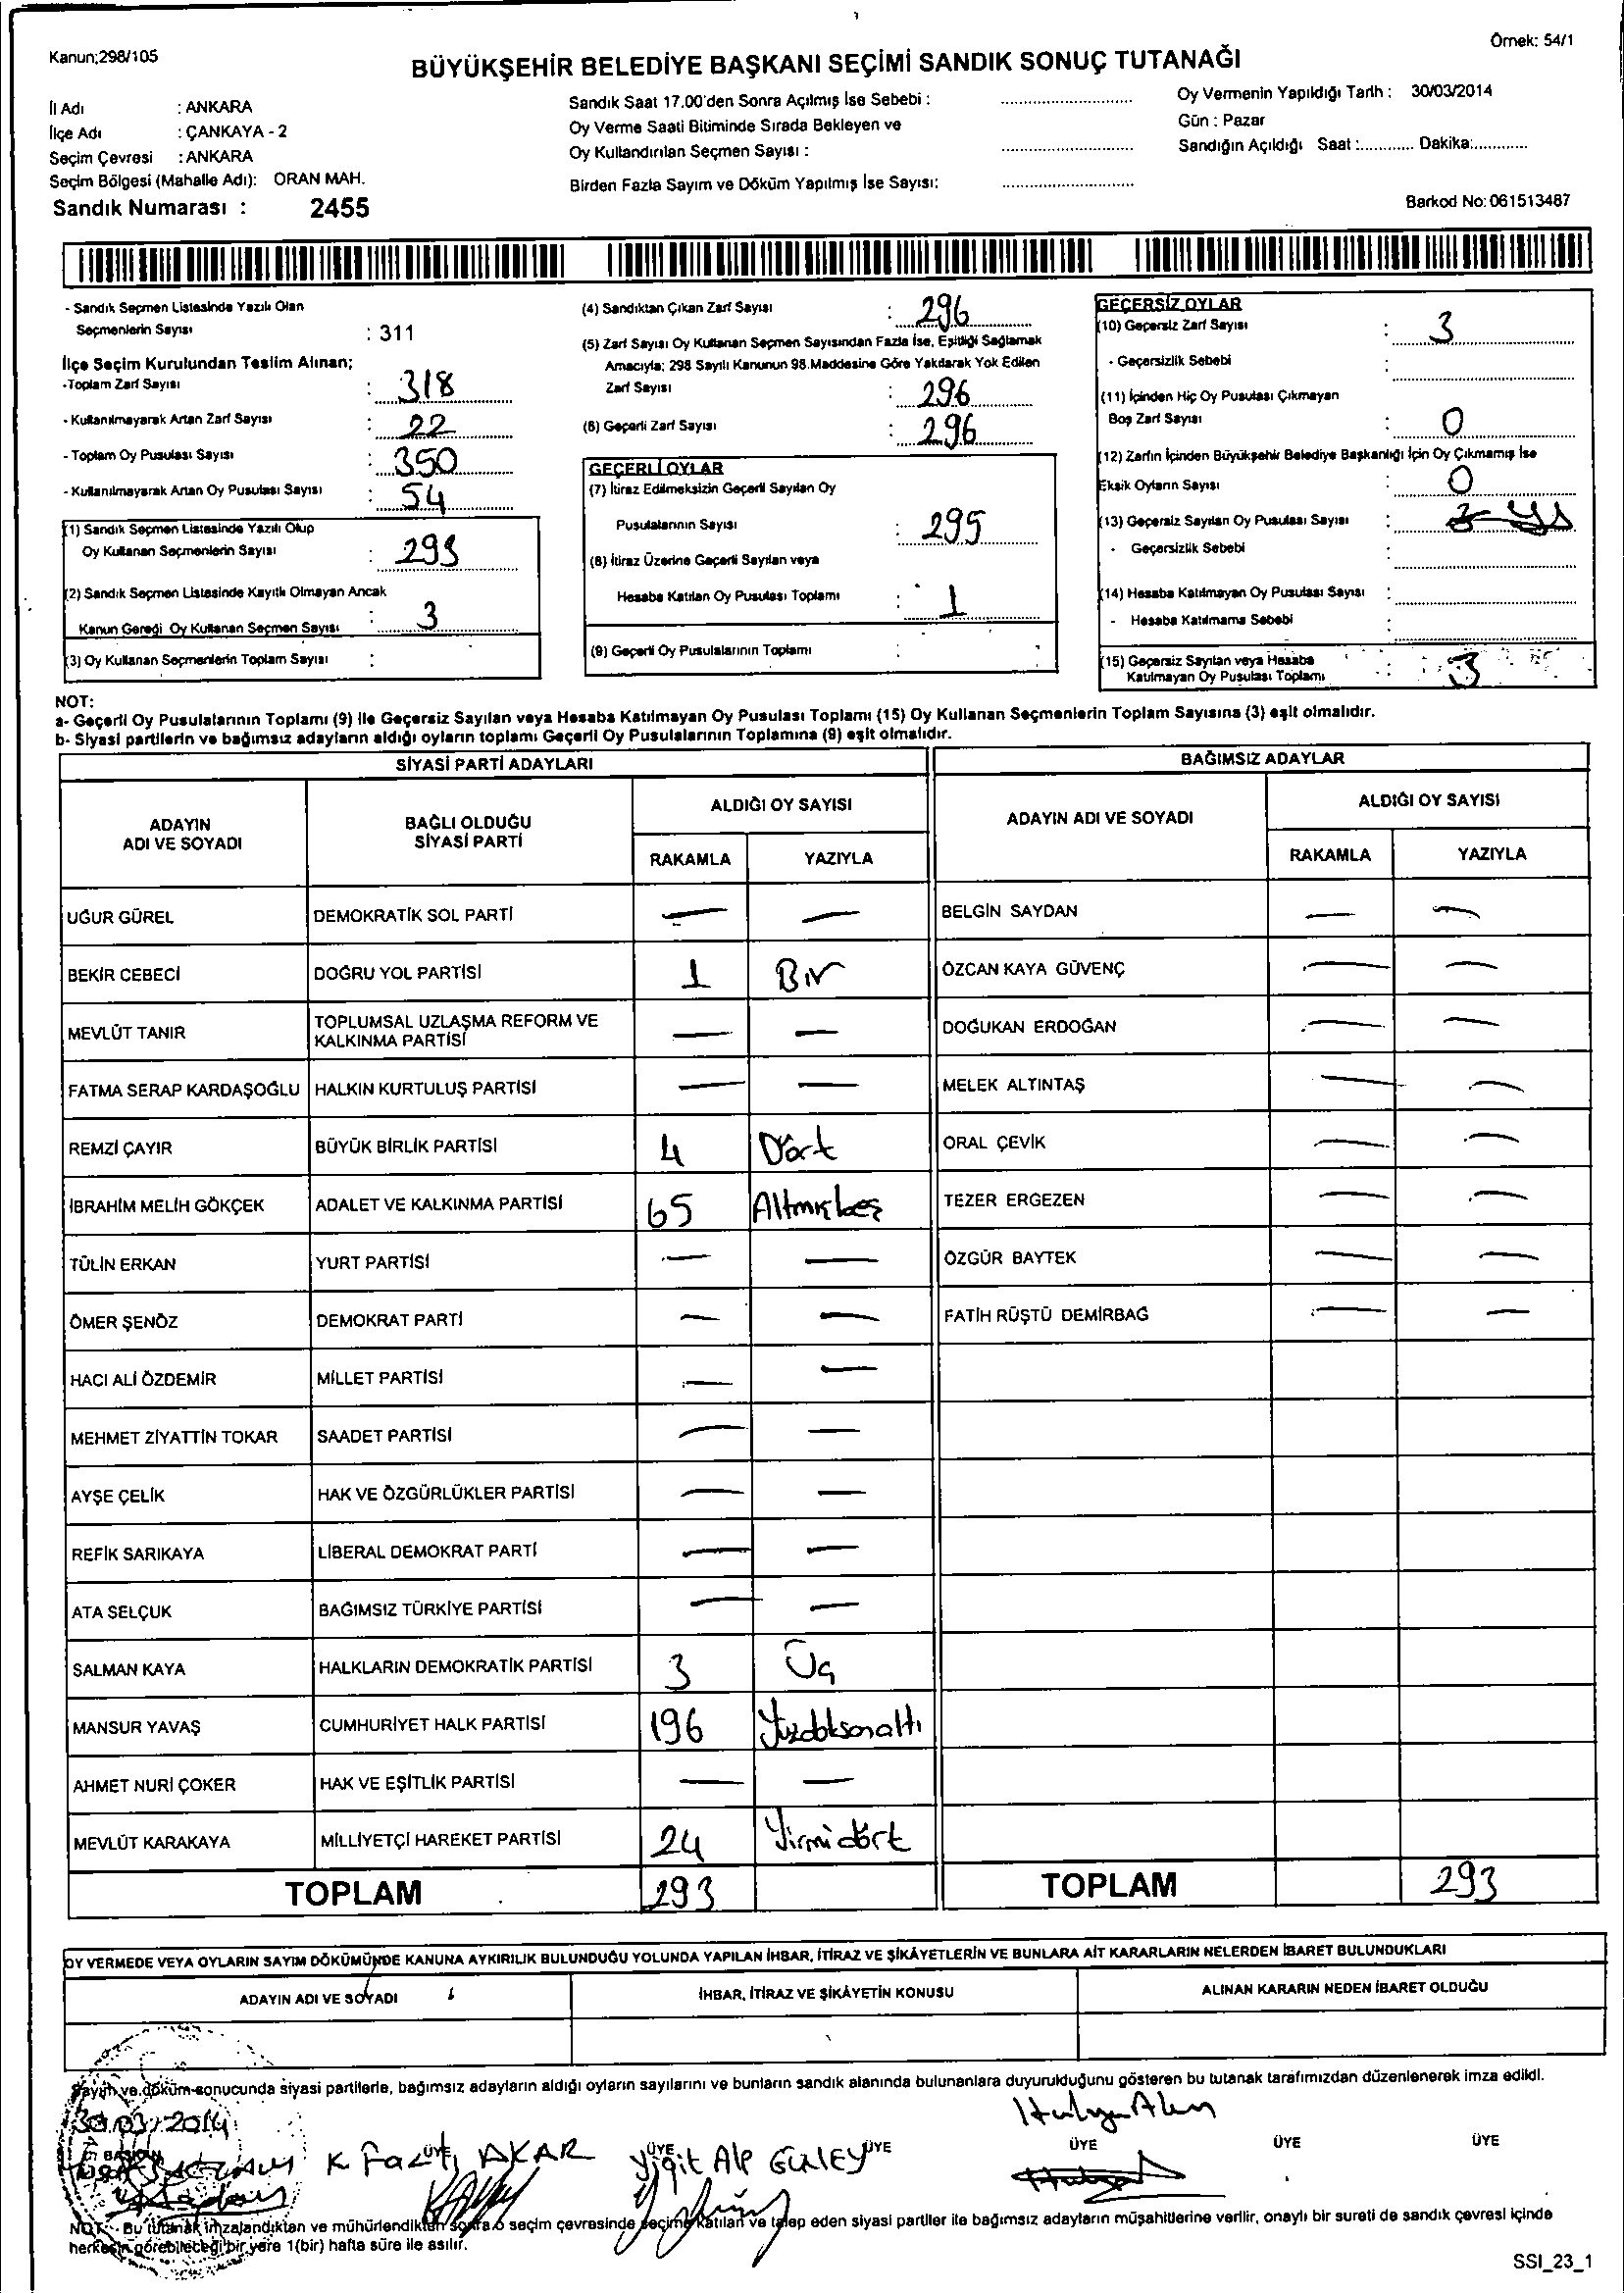 Kanun;298/105
Örnek: 54/1
BÜYÜKŞEHİR BELEDİYE BAŞKANI SEÇİMİ SANDIK SONUÇ TUTANAĞI
İl Adı : ANKARA
İlçe Adı : ÇANKAYA - 2
Seçim Çevresi : ANKARA
Seçim Bölgesi (Mahalle Adı): ORAN MAH.
Sandık Numarası : 2455
Sandık Saat 17.00'den Sonra Açılmış İse Sebebi :
Oy Verme Saati Bitiminde Sırada Bekleyen ve
Oy Kullandırılan Seçmen Sayısı :
Birden Fazla Sayım ve Döküm Yapılmış İse Sayısı:
Oy Vermenin Yapıldığı Tarih : 30/03/2014
Gün : Pazar
Sandığın Açıldığı Saat :............ Dakika:............
Barkod No: 061513487
- Sandık Seçmen Listesinde Yazılı Olan
Seçmenlerin Sayısı : 311
İlçe Seçim Kurulundan Teslim Alınan;
-Toplam Zarf Sayısı : 318
- Kullanılmayarak Artan Zarf Sayısı : 22
- Toplam Oy Pusulası Sayısı : 350
- Kullanılmayarak Artan Oy Pusulası Sayısı : 54
(1) Sandık Seçmen Listesinde Yazılı Olup
Oy Kullanan Seçmenlerin Sayısı : 293
(2) Sandık Seçmen Listesinde Kayıtlı Olmayan Ancak
Kanun Gereği Oy Kullanan Seçmen Sayısı : 3
(3) Oy Kullanan Seçmenlerin Toplam Sayısı :
(4) Sandıktan Çıkan Zarf Sayısı : 296
(5) Zarf Sayısı Oy Kullanan Seçmen Sayısından Fazla İse, Eşitliği Sağlamak
Amacıyla; 298 Sayılı Kanunun 98.Maddesine Göre Yakılarak Yok Edilen
Zarf Sayısı : 296
(6) Geçerli Zarf Sayısı : 296
GEÇERLİ OYLAR
(7) İtiraz Edilmeksizin Geçerli Sayılan Oy
Pusulalarının Sayısı : 295
(8) İtiraz Üzerine Geçerli Sayılan veya
Hesaba Katılan Oy Pusulası Toplamı : 1
(9) Geçerli Oy Pusulalarının Toplamı :
GEÇERSİZ OYLAR
(10) Geçersiz Zarf Sayısı : 3
- Geçersizlik Sebebi :
(11) İçinden Hiç Oy Pusulası Çıkmayan
Boş Zarf Sayısı : 0
(12) Zarfın İçinden Büyükşehir Belediye Başkanlığı İçin Oy Çıkmamış İse
Eksik Oyların Sayısı : 0
(13) Geçersiz Sayılan Oy Pusulası Sayısı : 3
- Geçersizlik Sebebi :
(14) Hesaba Katılmayan Oy Pusulası Sayısı :
- Hesaba Katılmama Sebebi :
(15) Geçersiz Sayılan veya Hesaba
Katılmayan Oy Pusulası Toplamı : 3
NOT:
a- Geçerli Oy Pusulalarının Toplamı (9) ile Geçersiz Sayılan veya Hesaba Katılmayan Oy Pusulası Toplamı (15) Oy Kullanan Seçmenlerin Toplam Sayısına (3) eşit olmalıdır.
b- Siyasi partilerin ve bağımsız adayların aldığı oyların toplamı Geçerli Oy Pusulalarının Toplamına (9) eşit olmalıdır.
SİYASİ PARTİ ADAYLARI
ADAYIN ADI VE SOYADI
BAĞLI OLDUĞU SİYASİ PARTİ
ALDIĞI OY SAYISI
RAKAMLA YAZIYLA
UĞUR GÜREL DEMOKRATİK SOL PARTİ — —
BEKİR CEBECİ DOĞRU YOL PARTİSİ 1 Bir
MEVLÜT TANIR TOPLUMSAL UZLAŞMA REFORM VE KALKINMA PARTİSİ — —
FATMA SERAP KARDAŞOĞLU HALKIN KURTULUŞ PARTİSİ — —
REMZİ ÇAYIR BÜYÜK BİRLİK PARTİSİ 4 Dört
İBRAHİM MELİH GÖKÇEK ADALET VE KALKINMA PARTİSİ 65 Altmışbeş
TÜLİN ERKAN YURT PARTİSİ — —
ÖMER ŞENÖZ DEMOKRAT PARTİ — —
HACI ALİ ÖZDEMİR MİLLET PARTİSİ — —
MEHMET ZİYATTİN TOKAR SAADET PARTİSİ — —
AYŞE ÇELİK HAK VE ÖZGÜRLÜKLER PARTİSİ — —
REFİK SARIKAYA LİBERAL DEMOKRAT PARTİ — —
ATA SELÇUK BAĞIMSIZ TÜRKİYE PARTİSİ — —
SALMAN KAYA HALKLARIN DEMOKRATİK PARTİSİ 3 Üç
MANSUR YAVAŞ CUMHURİYET HALK PARTİSİ 196 Yüzdoksanaltı
AHMET NURİ ÇOKER HAK VE EŞİTLİK PARTİSİ — —
MEVLÜT KARAKAYA MİLLİYETÇİ HAREKET PARTİSİ 24 Yirmidört
TOPLAM 293
BAĞIMSIZ ADAYLAR
ADAYIN ADI VE SOYADI
ALDIĞI OY SAYISI
RAKAMLA YAZIYLA
BELGİN SAYDAN — —
ÖZCAN KAYA GÜVENÇ — —
DOĞUKAN ERDOĞAN — —
MELEK ALTINTAŞ — —
ORAL ÇEVİK — —
TEZER ERGEZEN — —
ÖZGÜR BAYTEK — —
FATİH RÜŞTÜ DEMİRBAĞ — —
TOPLAM 293
OY VERMEDE VEYA OYLARIN SAYIM DÖKÜMÜNDE KANUNA AYKIRILIK BULUNDUĞU YOLUNDA YAPILAN İHBAR, İTİRAZ VE ŞİKÂYETLERİN VE BUNLARA AİT KARARLARIN NELERDEN İBARET BULUNDUKLARI
ADAYIN ADI VE SOYADI
İHBAR, İTİRAZ VE ŞİKÂYETİN KONUSU
ALINAN KARARIN NEDEN İBARET OLDUĞU
Sayım ve döküm sonucunda siyasi partilerle, bağımsız adayların aldığı oyların sayılarını ve bunların sandık alanında bulunanlara duyurulduğunu gösteren bu tutanak tarafımızdan düzenlenerek imza edildi.
30/03/2014
BAŞKAN ÜYE ÜYE ÜYE ÜYE ÜYE ÜYE
K Fazıl AKAR
Yiğit Alp GÜLEY
NOT:- Bu tutanak imzalandıktan ve mühürlendikten sonra o seçim çevresinde seçime katılan ve talep eden siyasi partiler ile bağımsız adayların müşahitlerine verilir, onaylı bir sureti de sandık çevresi içinde
herkesin görebileceği bir yere 1(bir) hafta süre ile asılır.
SSI_23_1